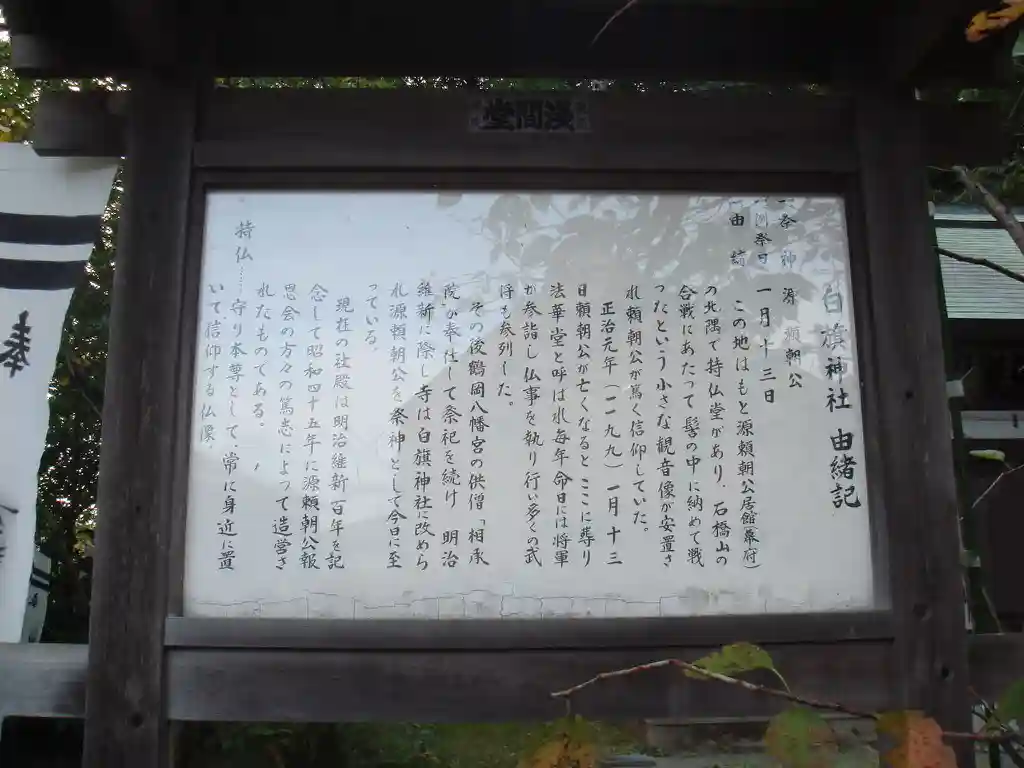 白旗神社 由緒記
一、祭神 源頼朝公
一、例祭日 一月十三日
一、由緒
この地はもと源頼朝公居館(幕府)
の北隅で持仏堂があり、石橋山の
合戦にあたって髻の中に納めて戦
ったという小さな観音像が安置さ
れ頼朝公が篤く信仰していた。
正治元年(一一九九)一月十三
日頼朝公が亡くなるとここに葬り
法華堂と呼ばれ毎年命日には将軍
が参詣し仏事を執り行い多くの武
将も参列した。
その後鶴岡八幡宮の供僧「相承
院」が奉仕して祭祀を続け、明治
維新に際し寺は白旗神社に改めら
れ源頼朝公を祭神として今日に至
っている。
現在の社殿は明治維新百年を記
念して昭和四十五年に源頼朝公報
恩会の方々の篤志によって造営さ
れたものである。
持仏……
守り本尊として、常に身近に置
いて信仰する仏像。
奉